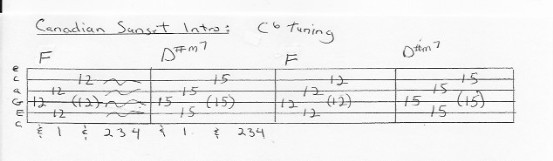 Canadian Sunset Intro: C6 Tuning
F D#m7 F D#m7
e
c 12 15 12 15
a 12 15 12 15
G 12 (12) 15 (15) 12 (12) 15 (15)
E 12 15 12 15
C
& 1 & 2 3 4 & 1 & 2 3 4